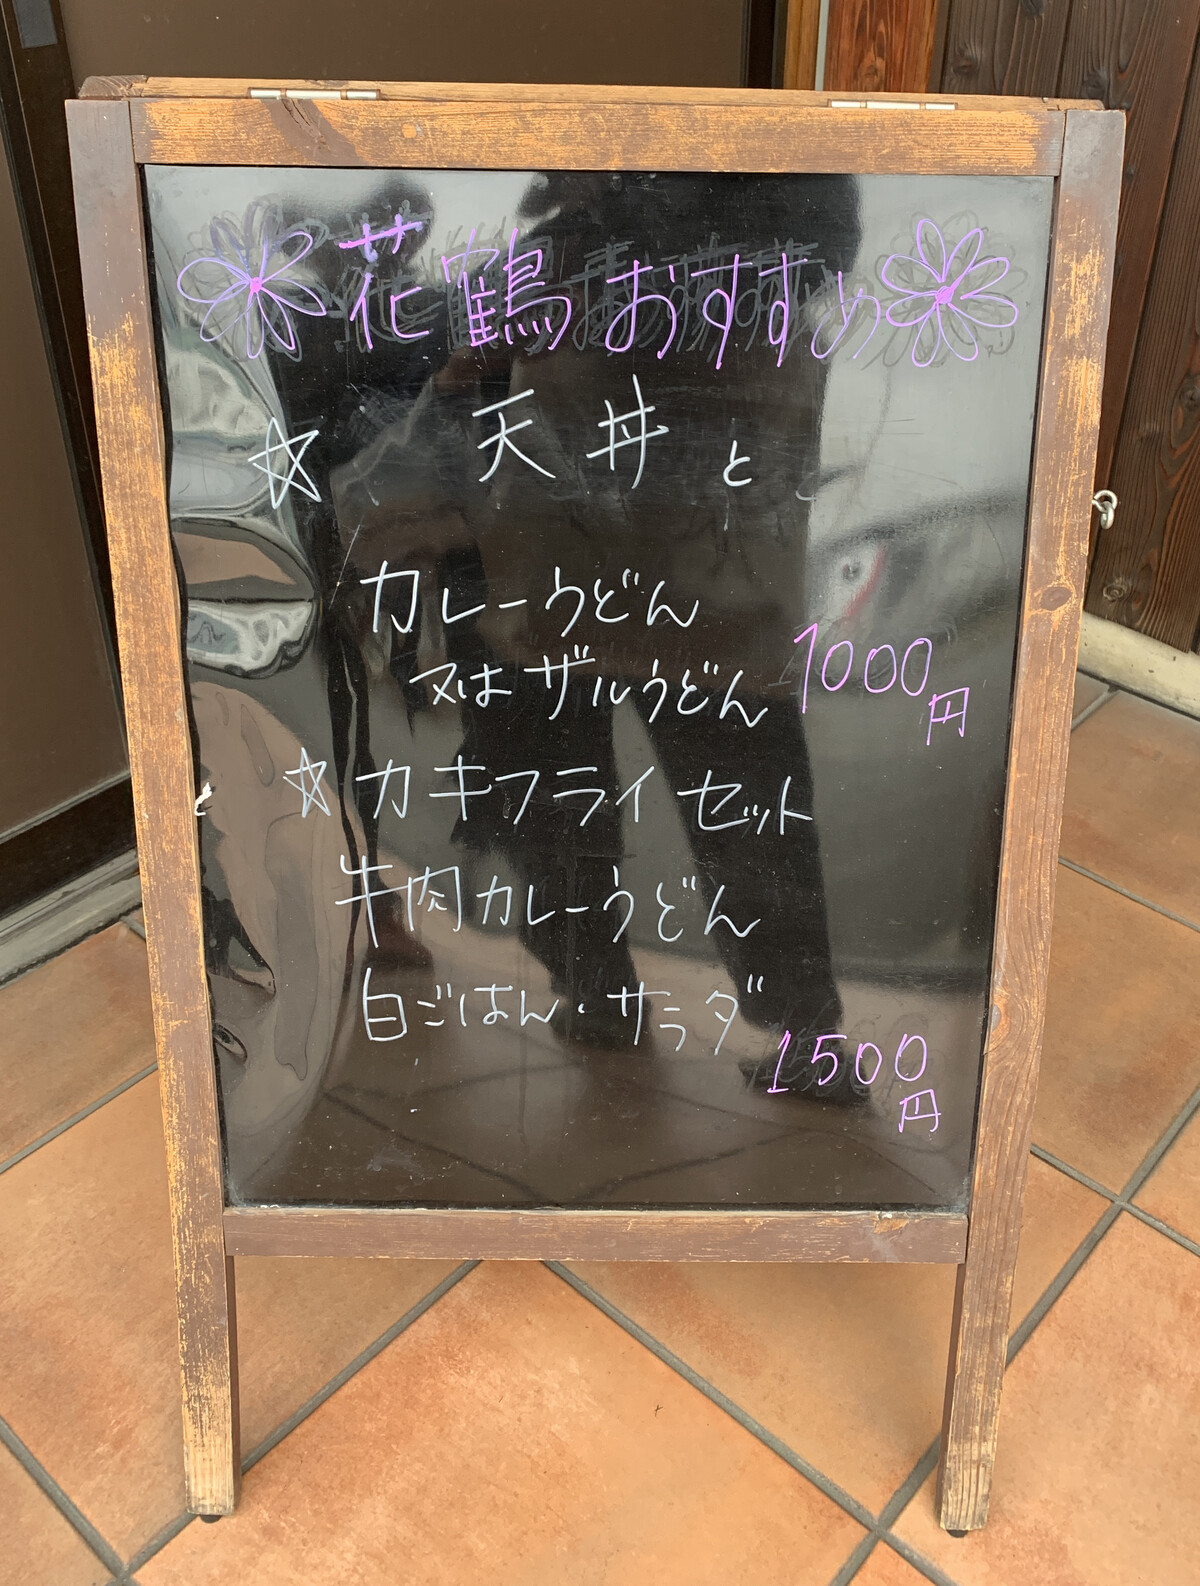 花鶴おすすめ
☆ 天丼と
カレーうどん
又はザルうどん 1000円
☆カキフライセット
牛肉カレーうどん
白ごはん・サラダ
1500円